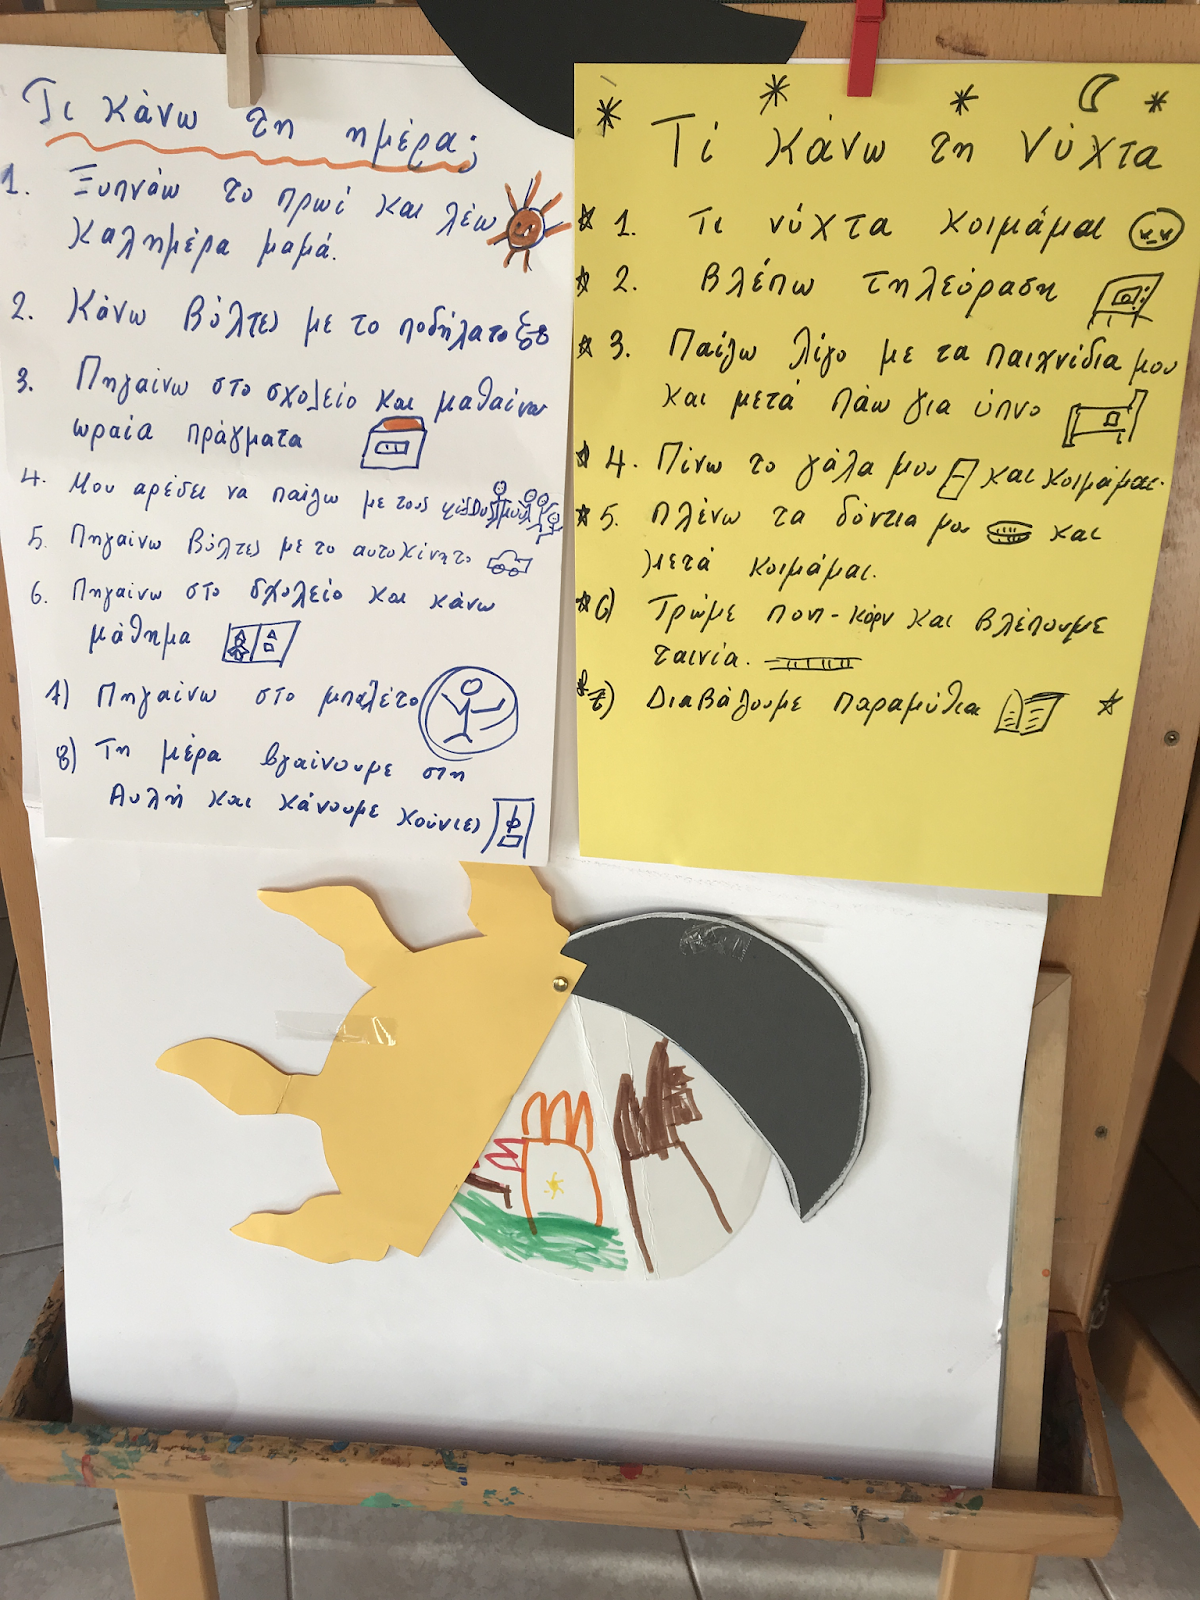 Τι κάνω τη ημέρα;
1. Ξυπνάω το πρωί και λέω
καλημέρα μαμά.
2. Κάνω βόλτες με το ποδήλατο
3. Πηγαίνω στο σχολείο και μαθαίνω
ωραία πράγματα
4. Μου αρέσει να παίζω με τους φίλους μου
5. Πηγαίνω βόλτες με το αυτοκίνητο
6. Πηγαίνω στο σχολείο και κάνω
μάθημα
7) Πηγαίνω στο μπαλέτο
8) Τη μέρα βγαίνουμε στη
Αυλή και κάνουμε κούνιες
Τί κάνω τη νύχτα
1. Τι νύχτα κοιμάμαι
2. Βλέπω τηλεόραση
3. Παίζω λίγο με τα παιχνίδια μου
και μετά πάω για ύπνο
4. Πίνω το γάλα μου και κοιμάμαι.
5. Πλένω τα δόντια μου και
μετά κοιμάμαι.
6) Τρώμε ποπ-κόρν και βλέπουμε
ταινία.
7) Διαβάζουμε παραμύθια